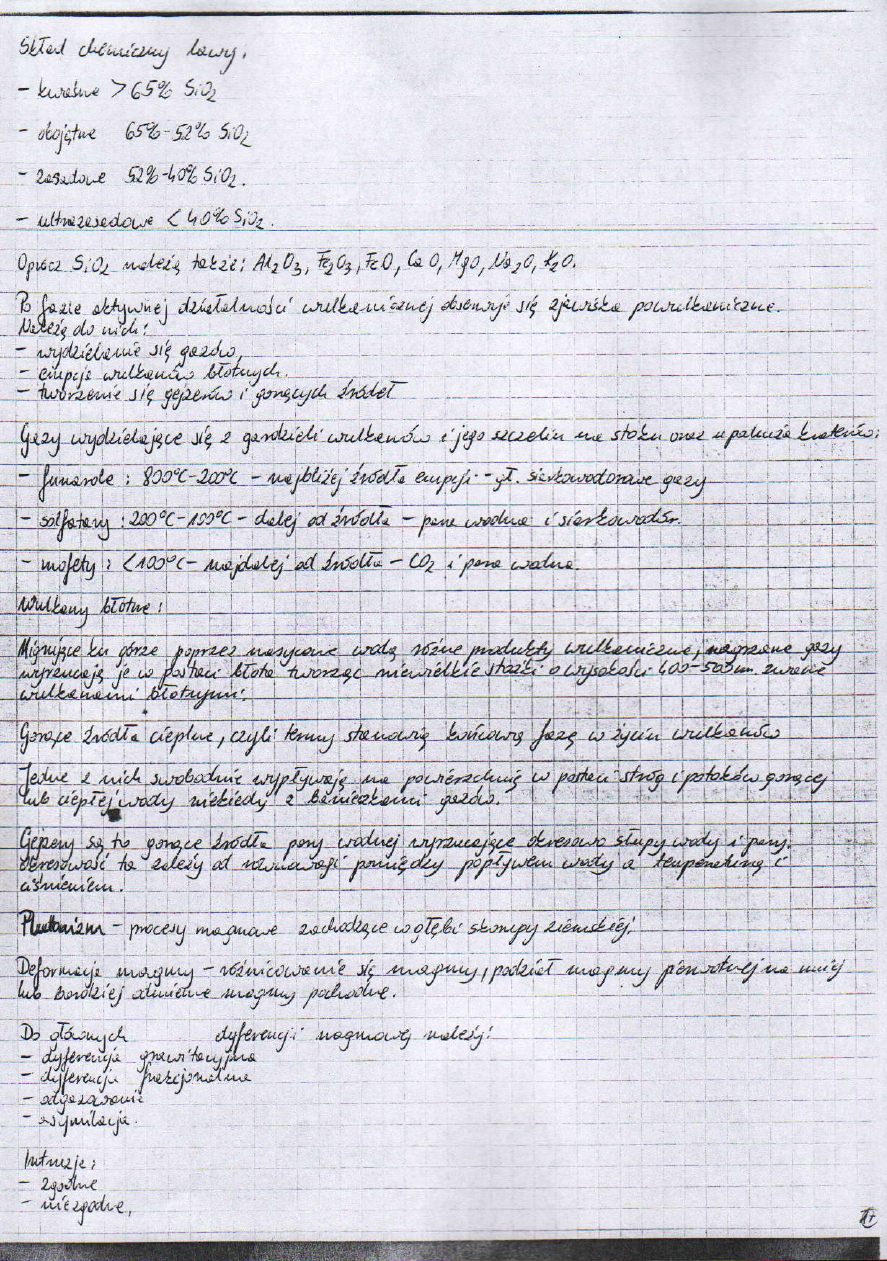 Skład chemiczny lawy.
- kwaśne > 65% SiO2
- obojętne 65%-52% SiO2
- zasadowe 52%-40% SiO2.
- ultrazasadowe < 40% SiO2.
Oprócz SiO2 należą także: Al2O3, Fe2O3, FeO, CaO, MgO, Na2O, K2O.
Po fazie aktywnej działalności wulkanicznej obserwuje się zjawiska powulkaniczne.
Należą do nich:
- wydzielanie się gazów,
- erupcje wulkanów błotnych.
- tworzenie się gejzerów i gorących źródeł
Gazy wydzielające się z gardzieli wulkanów i jego szczelin na stoku oraz w pobliżu kraterów:
- fumarole : 800°C-200°C - najbliżej źródła erupcji - gł. siarkowodorowe gazy
- solfatary : 200°C-100°C - dalej od źródła - para wodna i siarkowodór.
- mofety : < 100°C - najdalej od źródła - CO2 i para wodna.
Wulkany błotne :
Migrujące ku górze poprzez nasycone wodą różne produkty wulkaniczne, nagrzane gazy
wyrzucają je w postaci błota tworząc niewielkie stożki o wysokości 400-500m zwane
wulkanami błotnymi.
Gorące źródła cieplne, czyli termy stanowią końcową fazę w życiu wulkanów
Jedne z nich swobodnie wypływają na powierzchnię w postaci strug i potoków gorącej
lub ciepłej wody niekiedy z banieczkami gazów.
Gejzery są to gorące źródła pary wodnej wyrzucające okresowo słupy wody i pary.
Okresowość ta zależy od równowagi pomiędzy dopływem wody a temperaturą i
ciśnieniem.
Plutonizm - procesy magmowe zachodzące w głębi skorupy ziemskiej.
Deformacje magmy - różnicowanie się magmy, podział magmy pierwotnej na mniej
lub bardziej odmienne magmy pochodne.
Do głównych dyferencji magmowej należy:
- dyferencja grawitacyjna
- dyferencja frakcjonalna
- odgazowanie
- asymilacja.
Intruzje:
- zgodne
- niezgodne,